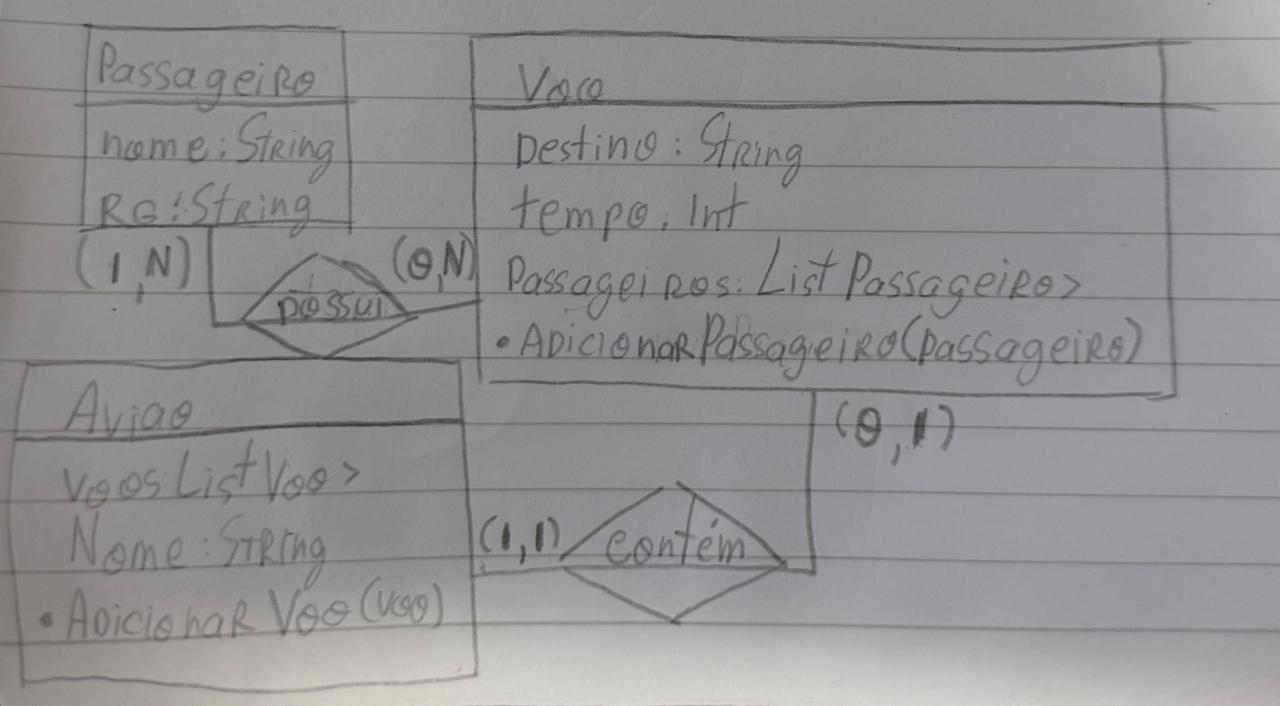 Passageiro
nome: String
RG: String
(1,N)
possui
(0,N)
Voo
Destino: String
tempo: Int
Passageiros: List Passageiro>
• AdicionarPassageiro(passageiro)
(0,1)
contém
(1,1)
Aviao
voos: List Voo>
Nome: String
• Adicionar Voo (voo)